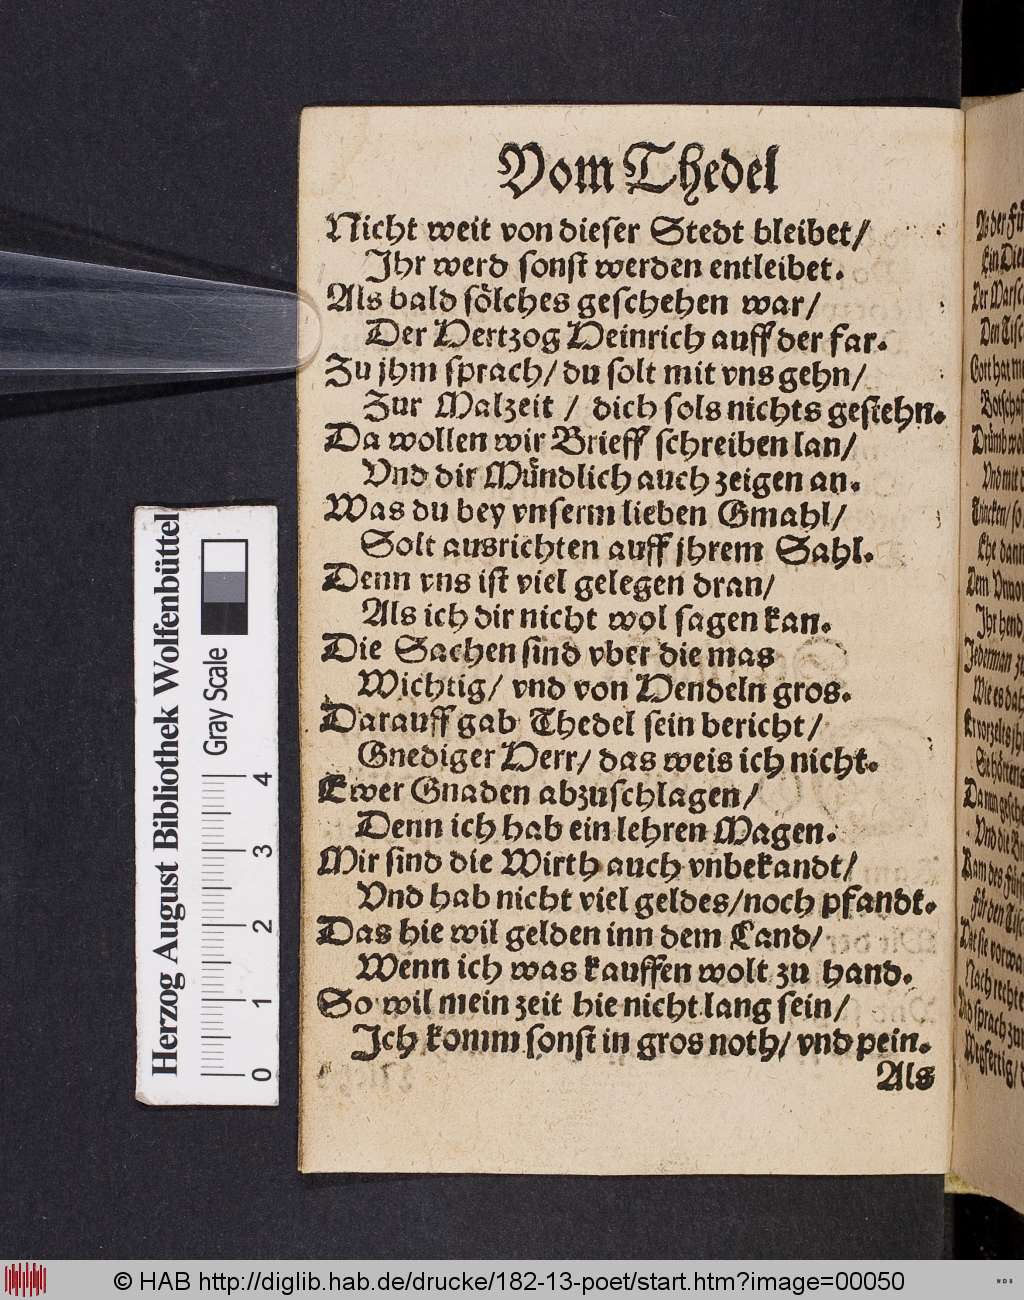 Vom Thedel
Nicht weit von dieser Stedt bleibet/
Ihr werd sonst werden entleibet.
Als bald sölches geschehen war/
Der Hertzog Heinrich auff der far.
Zu jhm sprach/ du solt mit vns gehn/
Zur Malzeit / dich sols nichts gestehn.
Da wollen wir Brieff schreiben lan/
Vnd dir Mündlich auch zeigen an.
Was du bey vnserm lieben Gmahl/
Solt ausrichten auff jhrem Sahl.
Denn vns ist viel gelegen dran/
Als ich dir nicht wol sagen kan.
Die Sachen sind vber die mas
Wichtig/ vnd von Hendeln gros.
Darauff gab Thedel sein bericht/
Gnediger Herr/ das weis ich nicht.
Ewer Gnaden abzuschlagen/
Denn ich hab ein lehren Magen.
Mir sind die Wirth auch vnbekandt/
Vnd hab nicht viel geldes/noch pfandt.
Das hie wil gelden inn dem Land/
Wenn ich was kauffen wolt zu hand.
So wil mein zeit hie nicht lang sein/
Ich komm sonst in gros noth/ vnd pein.
Als
Herzog August Bibliothek Wolfenbüttel
Gray Scale
0 1 2 3 4
© HAB http://diglib.hab.de/drucke/182-13-poet/start.htm?image=00050